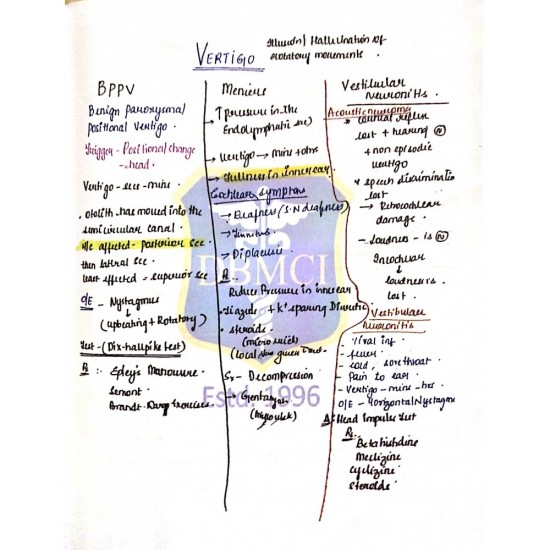 VERTIGO
Illusion/Hallucination of
rotatory movements.
BPPV
Benign Paroxysmal
positional Vertigo.
Trigger - Positional change
- head.
Vertigo - sec - mins
Otolith has moved into the
semicircular canal.
M/c affected - posterior scc
then lateral scc
least affected - superior scc
O/E - Nystagmus
↓
(upbeating + Rotatory)
Test - (Dix-hallpike test)
Rx :- Epley's Manouvre
Semont
Brandt - Exercises
Meniers
↑ pressure in the
Endolymphatic sac
→ Vertigo → mins + hrs
→ fullness in inner ear
Cochlear symptoms
→ Deafness (S.N deafness)
→ Tinnitus
→ Diplacusis
Reduce Pressure in inner ear
+ K+ sparing Diuretics
• steroids
(local given
Sx - Decompression
→
DBMCI
Estd. 1996
Vestibular
Neuronitis.
Acoustic neuroma
reflex
lost + hearing (N)
+ non episodic
vertigo
* speech discrimination
lost
→ Retrocochlear
damage.
- loudness - is (N)
↓
loudness is
lost.
Vestibular
Neuronitis
- Viral inf.
- fever
- cold, sorethroat
- Pain to ear
- Vertigo - mins - hrs
O/E - Horizontal Nystagmus
Head Impulse test
Rx
Betahistidine
Meclizine
cyclizine
steroids